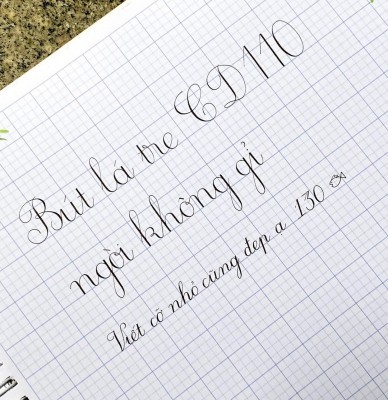 Bút lá tre CD110
ngòi không gỉ
Viết cỡ nhỏ cũng đẹp ạ 130